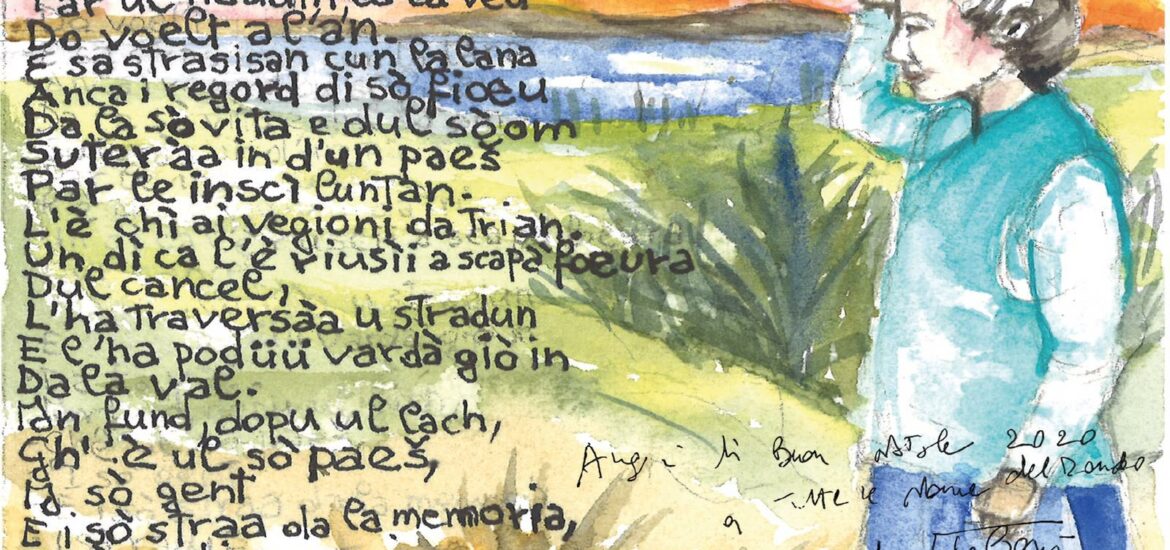 Do voelt a l'án.
E sa strasisan cun la lana
Anca i regord di sò fioeu
Da la sò vita e dul sò om
Suteràa in d'un paeš
Par le inscì luntan.
L'è chì ai vegioni da Trian.
Un dì ca l'è riusìi a scapà foeura
Dul cancel,
L'ha traversàa u stradun
E l'ha podüü vardà giò in
Da la val.
In fund, dopu ul lach,
Gh'è ul sò paeš,
La sò gent
E i sò straa
la memoria,
Buon Natale 2020
del Mondo